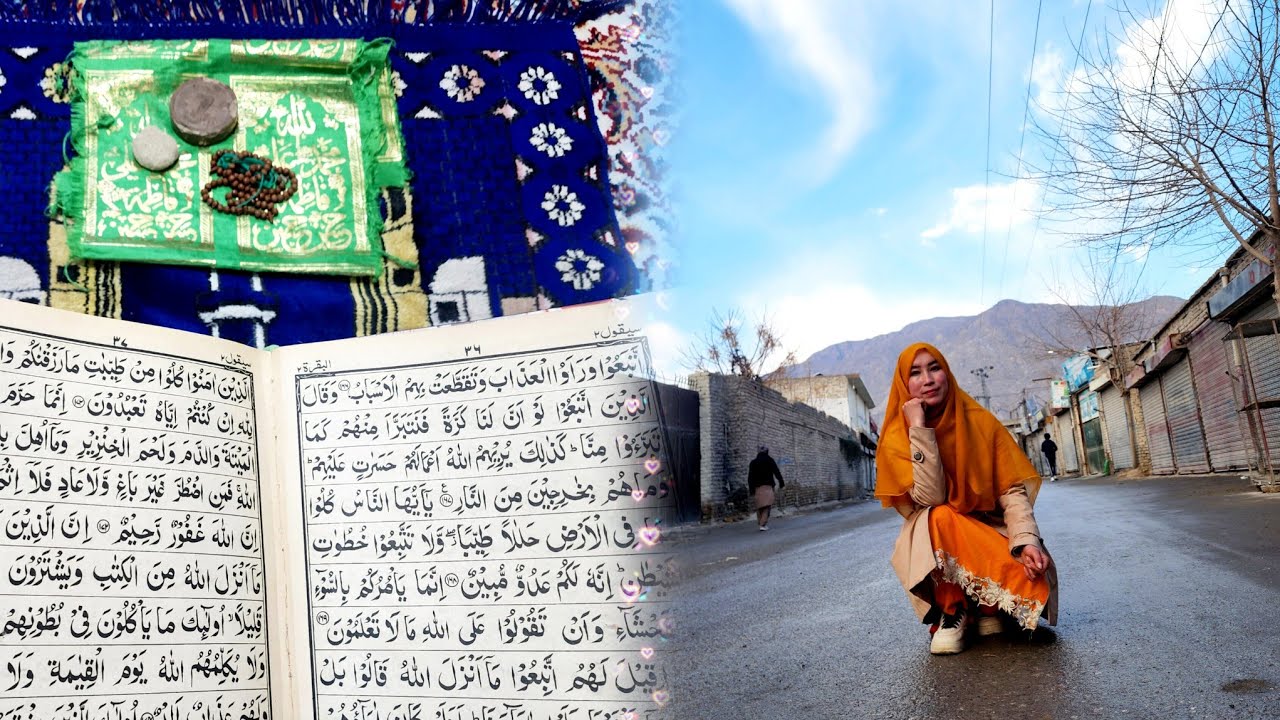 الله
محمد علی
فاطمه
حسن حسین
سيقول ٢
٣٦
البقرة ٢
اتَّبَعُوْا وَرَاَوُا الْعَذَابَ وَتَقَطَّعَتْ بِهِمُ الْاَسْبَابُ ۝۱۶۶ وَقَالَ
الَّذِيْنَ اتَّبَعُوْا لَوْ اَنَّ لَنَا كَرَّةً فَنَتَبَرَّاَ مِنْهُمْ كَمَا
تَبَرَّءُوْا مِنَّا ؕ كَذٰلِكَ يُرِيْهِمُ اللّٰهُ اَعْمَالَهُمْ حَسَرٰتٍ عَلَيْهِمْ ؕ
وَمَا هُمْ بِخٰرِجِيْنَ مِنَ النَّارِ ۝۱۶۷ يٰۤاَيُّهَا النَّاسُ كُلُوْا
فِى الْاَرْضِ حَلٰلًا طَيِّبًا ۖ وَّلَا تَتَّبِعُوْا خُطُوٰتِ
اِنَّهٗ لَكُمْ عَدُوٌّ مُّبِيْنٌ ۝۱۶۸ اِنَّمَا يَاْمُرُكُمْ بِالسُّوْٓءِ
وَاَنْ تَقُوْلُوْا عَلَى اللّٰهِ مَا لَا تَعْلَمُوْنَ ۝۱۶۹
قِيْلَ لَهُمُ اتَّبِعُوْا مَاۤ اَنْزَلَ اللّٰهُ قَالُوْا بَلْ
سيقول ٢
٣٧
الَّذِيْنَ اٰمَنُوْا كُلُوْا مِنْ طَيِّبٰتِ مَا رَزَقْنٰكُمْ
لِلّٰهِ اِنْ كُنْتُمْ اِيَّاهُ تَعْبُدُوْنَ ۝۱۷۲ اِنَّمَا حَرَّمَ
الْمَيْتَةَ وَالدَّمَ وَلَحْمَ الْخِنْزِيْرِ وَمَاۤ اُهِلَّ
اللّٰهِ ۚ فَمَنِ اضْطُرَّ غَيْرَ بَاغٍ وَّلَا عَادٍ فَلَاۤ
اِنَّ اللّٰهَ غَفُوْرٌ رَّحِيْمٌ ۝۱۷۳ اِنَّ الَّذِيْنَ
مَاۤ اَنْزَلَ اللّٰهُ مِنَ الْكِتٰبِ وَيَشْتَرُوْنَ
قَلِيْلًا ۙ اُولٰٓئِكَ مَا يَاْكُلُوْنَ فِيْ بُطُوْنِهِمْ
وَلَا يُكَلِّمُهُمُ اللّٰهُ يَوْمَ الْقِيٰمَةِ وَلَا